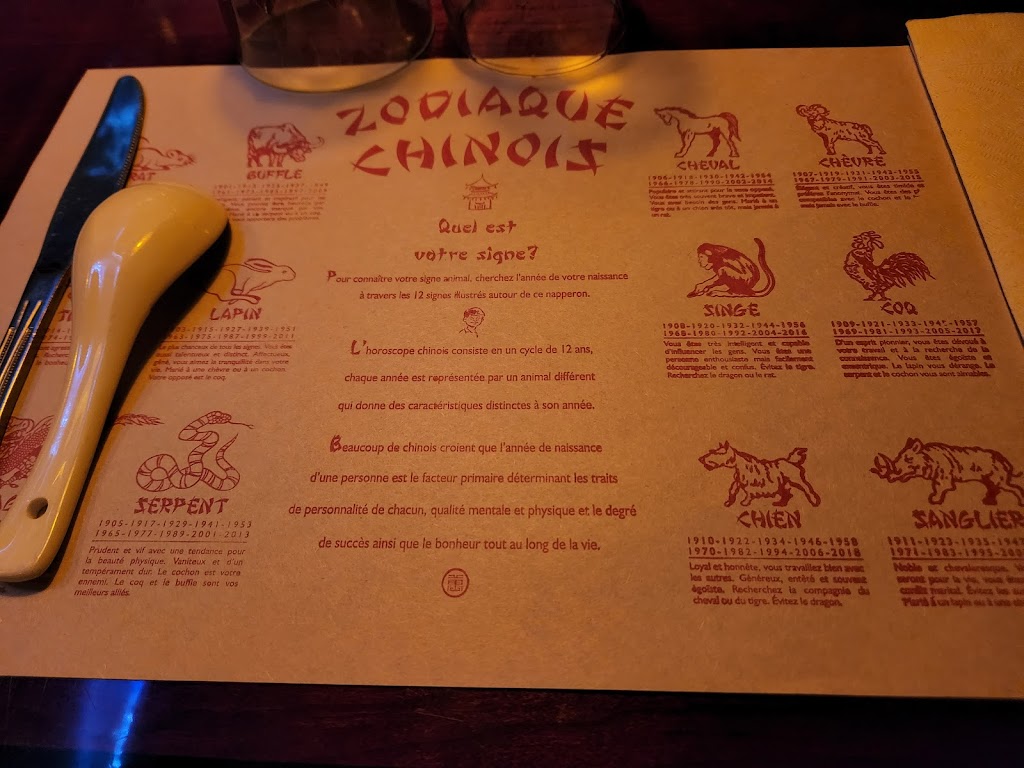 ZODIAQUE
CHINOIS
Quel est
votre signe?
Pour connaître votre signe animal, cherchez l'année de votre naissance
à travers les 12 signes illustrés autour de ce napperon.
L'horoscope chinois consiste en un cycle de 12 ans,
chaque année est représentée par un animal différent
qui donne des caractéristiques distinctes à son année.
Beaucoup de chinois croient que l'année de naissance
d'une personne est le facteur primaire déterminant les traits
de personnalité de chacun, qualité mentale et physique et le degré
de succès ainsi que le bonheur tout au long de la vie.
BUFFLE
LAPIN
plus chanceux de tous les signes. Vous êtes
aussi talentueux et distinct. Affectueux,
gêné, vous aimez la tranquilité dans votre
vie. Marié à une chèvre ou à un cochon.
Votre opposé est le coq.
SERPENT
1905-1917-1929-1941-1953
1965-1977-1989-2001-2013
Prudent et vif avec une tendance pour
la beauté physique. Vaniteux et d'un
tempérament dur. Le cochon est votre
ennemi. Le coq et le buffle sont vos
meilleurs alliés.
CHEVAL
1906-1918-1930-1942-1954
1966-1978-1990-2002-2014
Populaire et attirant pour le sexe opposé.
Vous êtes très souvent brave et impatient.
Vous avez besoin des gens. Marié à un
tigre ou à un chien très tôt, mais jamais à
un rat.
CHÈVRE
1907-1919-1931-1943-1955
1967-1979-1991-2003-2015
Élégant et créatif, vous êtes timide et
préférez l'anonymat. Vous êtes des
compatibles avec le cochon et le
mais jamais avec le buffle.
SINGE
1908-1920-1932-1944-1956
1968-1980-1992-2004-2016
Vous êtes très intelligent et capable
d'influencer les gens. Vous êtes une
personne enthousiaste mais facilement
décourageable et confus. Évitez le tigre.
Recherchez le dragon ou le rat.
COQ
1909-1921-1933-1945-1957
1969-1981-1993-2005-2017
D'un esprit pionnier, vous êtes dévoué à
votre travail et à la recherche de la
connaissance. Vous êtes égoïste et
excentrique. Le lapin vous dérange. Le
serpent et le cochon vous sont aimables.
CHIEN
1910-1922-1934-1946-1958
1970-1982-1994-2006-2018
Loyal et honnête, vous travaillez bien avec
les autres. Généreux, entêté et souvent
égoïste. Recherchez la compagnie du
cheval ou du tigre. Évitez le dragon.
SANGLIER
1911-1923-1935-1947
1971-1983-1995-2007
Noble et chevaleresque.
seront pour la vie, vous êtes
conflit marital. Évitez les
Marié à un lapin ou à une